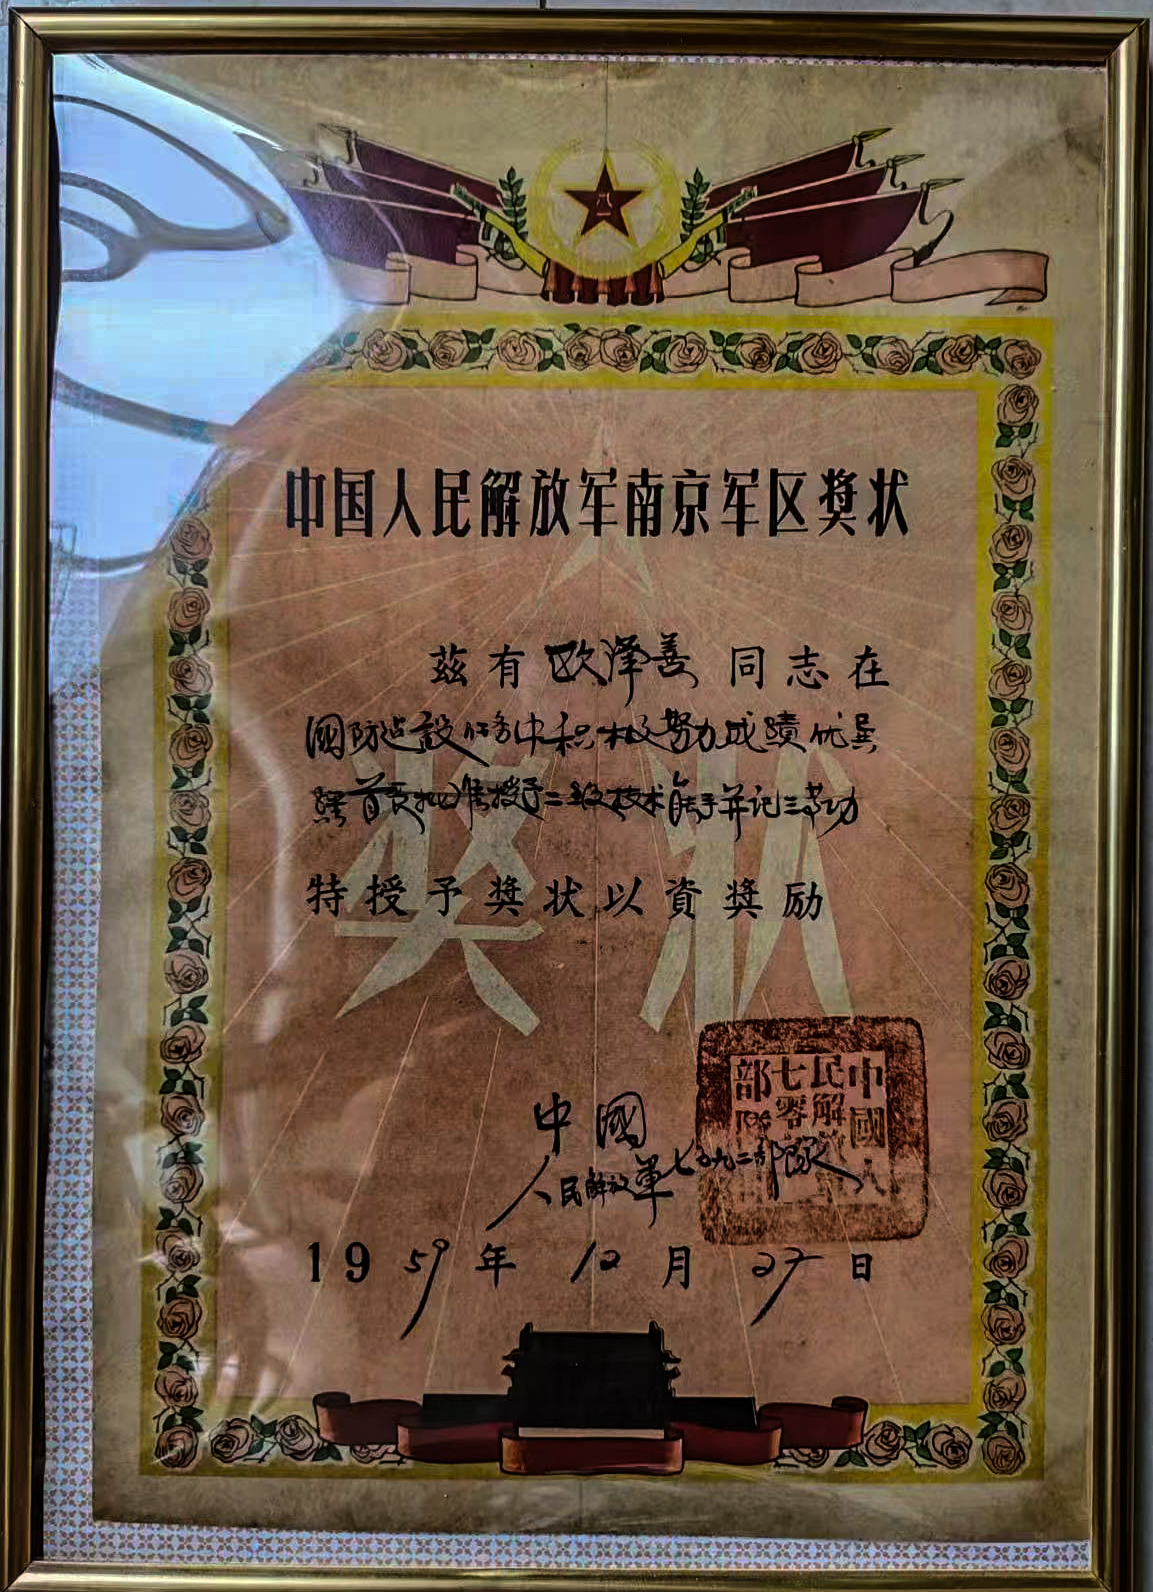 中国人民解放军南京军区奖状
茲有欧泽善同志在
國防建設任务中积极努力成績优異
經首長批准授予二级技术能手并记三等功
特授予奖状以資奖励
中國
人民解放軍七〇九二部隊
1959年12月27日
中國人
民解放
七零
部隊
奖状
八一